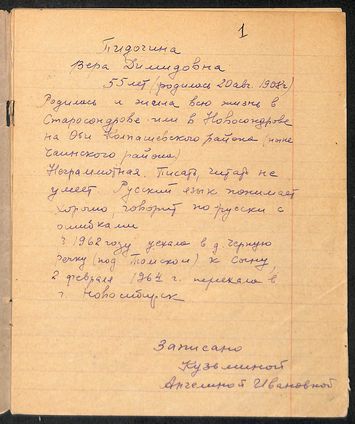 1
Пидогина
Вера Димидовна
55 лет (родилась 20 авг. 1908 г)
Родилась и жила всю жизнь в
Старосондрове или в Новосондрове
на Оби Колпашевского района (ныне
Чаинского района)
Неграмотная. Писать, читать не
умеет. Русский язык понимает
хорошо, говорит по русски с
ошибками
В 1962 году уехала в д. Черную
речку (под Томском) к сыну,
2 февраля 1964 г. переехала в
г. Новосибирск
Записано
Кузьминой
Ангелиной Ивановной